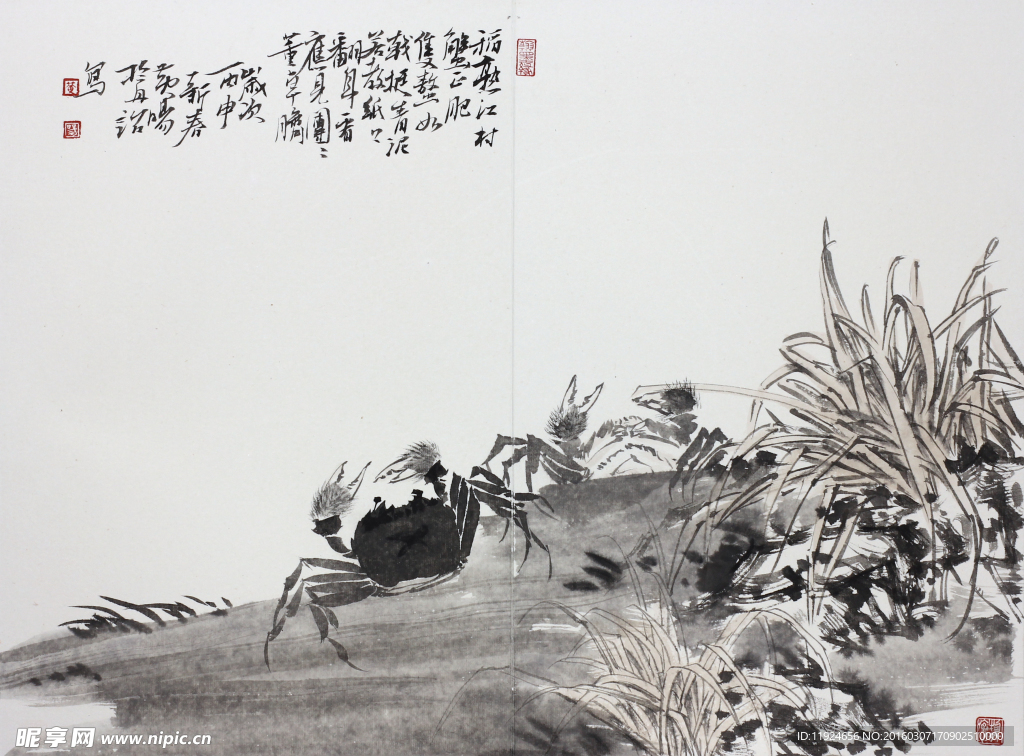 稻熟江村
蟹正肥
隻螯如
戟挺青泥
若教紙上
翻身看
應見團々
董卓臍
歲次
丙申
新春
黄暘
於丹詔
寫
昵享网 www.nipic.cn
ID:11924656 NO:20160307170902510000